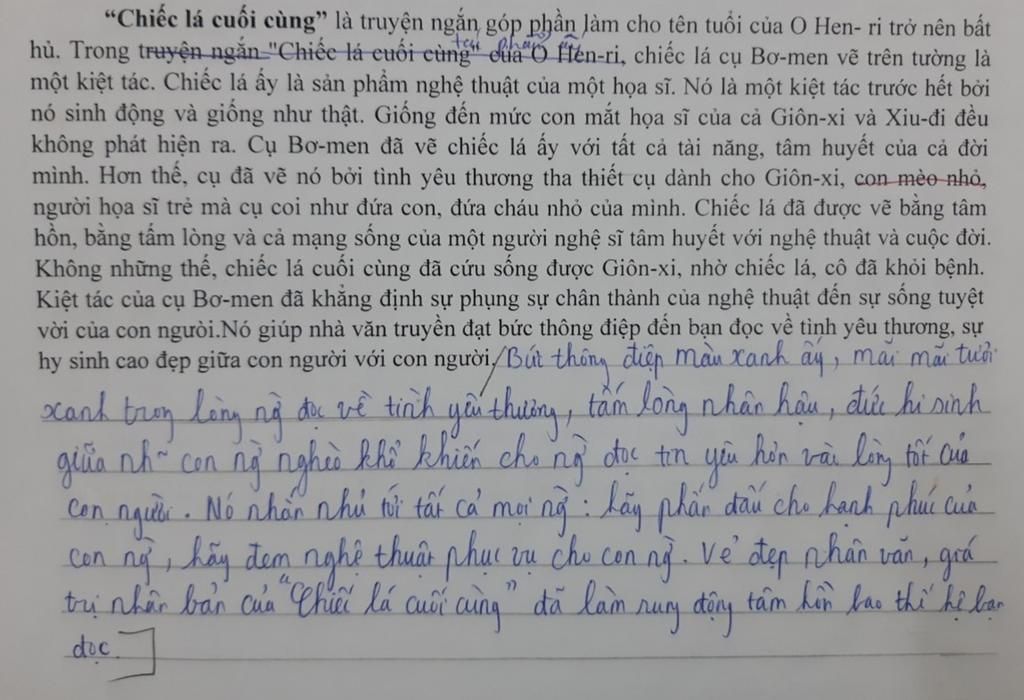 “Chiếc lá cuối cùng” là truyện ngắn góp phần làm cho tên tuổi của O Hen- ri trở nên bất
hủ. Trong truyện ngắn "Chiếc lá cuối cùng" của O Hen-ri, chiếc lá cụ Bơ-men vẽ trên tường là
một kiệt tác. Chiếc lá ấy là sản phẩm nghệ thuật của một họa sĩ. Nó là một kiệt tác trước hết bởi
nó sinh động và giống như thật. Giống đến mức con mắt họa sĩ của cả Giôn-xi và Xiu-đi đều
không phát hiện ra. Cụ Bơ-men đã vẽ chiếc lá ấy với tất cả tài năng, tâm huyết của cả đời
mình. Hơn thế, cụ đã vẽ nó bởi tình yêu thương tha thiết cụ dành cho Giôn-xi, con mèo nhỏ,
người họa sĩ trẻ mà cụ coi như đứa con, đứa cháu nhỏ của mình. Chiếc lá đã được vẽ bằng tâm
hồn, bằng tấm lòng và cả mạng sống của một người nghệ sĩ tâm huyết với nghệ thuật và cuộc đời.
Không những thế, chiếc lá cuối cùng đã cứu sống được Giôn-xi, nhờ chiếc lá, cô đã khỏi bệnh.
Kiệt tác của cụ Bơ-men đã khẳng định sự phụng sự chân thành của nghệ thuật đến sự sống tuyệt
vời của con nguời.Nó giúp nhà văn truyền đạt bức thông điệp đến bạn đọc về tình yêu thương, sự
hy sinh cao đẹp giữa con người với con người./ Bức thông điệp màu xanh ấy, mãi mãi tươi
xanh trong lòng ng̀ đọc về tình yêu thương, tấm lòng nhân hậu, đức hi sinh
giữa nh~ con ng̀ nghèo khổ khiến cho ng̀ đọc tin yêu hơn vào lòng tốt của
con người. Nó nhắn nhủ tới tất cả mọi ng̀ : hãy phấn đấu cho hạnh phúc của
con ng̀, hãy đem nghệ thuật phục vụ cho con ng̀. Vẻ đẹp nhân văn, giá
trị nhân bản của “Chiếc lá cuối cùng” đã làm rung động tâm hồn bao thế hệ bạn
đọc